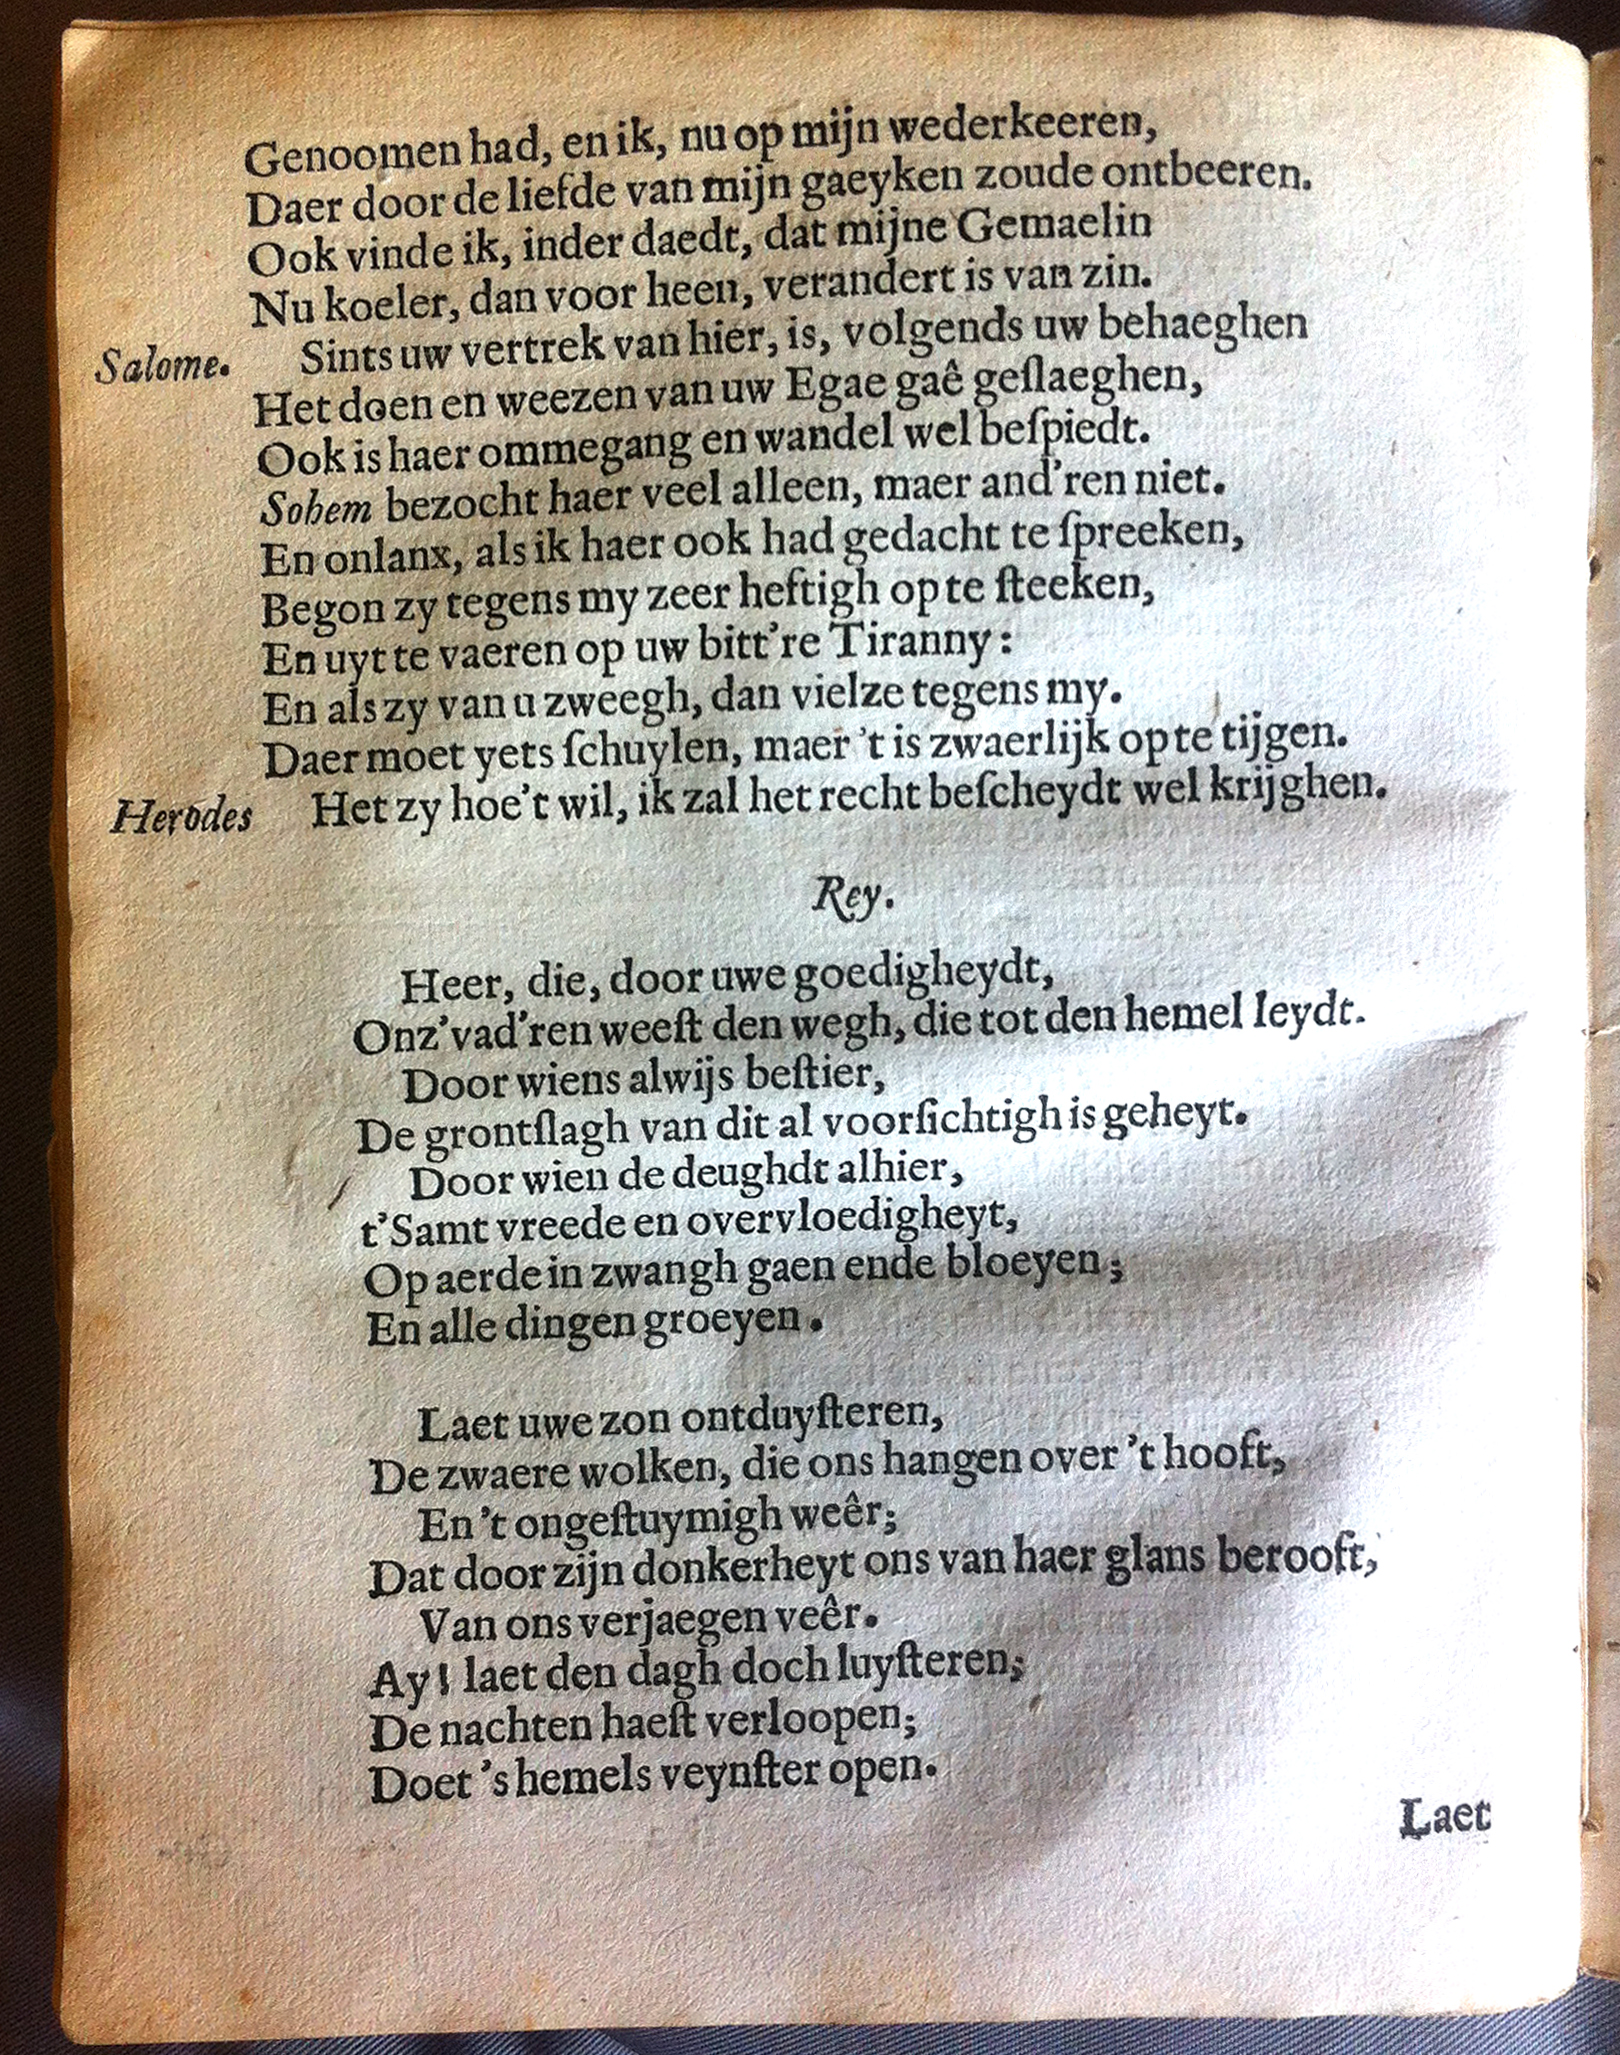 Genoomen had, en ik, nu op mijn wederkeeren,
Daer door de liefde van mijn gaeyken zoude ontbeeren.
Ook vinde ik, inder daedt, dat mijne Gemaelin
Nu koeler, dan voor heen, verandert is van zin.
Salome. Sints uw vertrek van hier, is, volgends uw behaeghen
Het doen en weezen van uw Egae gaê geſlaeghen,
Ook is haer ommegang en wandel wel beſpiedt.
Sohem bezocht haer veel alleen, maer and'ren niet.
En onlanx, als ik haer ook had gedacht te ſpreeken,
Begon zy tegens my zeer heftigh op te ſteeken,
En uyt te vaeren op uw bitt're Tiranny:
En als zy van u zweegh, dan vielze tegens my.
Daer moet yets ſchuylen, maer 't is zwaerlijk op te tijgen.
Herodes Het zy hoe't wil, ik zal het recht beſcheydt wel krijghen.
Rey.
Heer, die, door uwe goedigheydt,
Onz'vad'ren weeſt den wegh, die tot den hemel leydt.
Door wiens alwijs beſtier,
De grontſlagh van dit al voorſichtigh is geheyt.
Door wien de deughdt alhier,
t'Samt vreede en overvloedigheyt,
Op aerde in zwangh gaen ende bloeyen;
En alle dingen groeyen.
Laet uwe zon ontduyſteren,
De zwaere wolken, die ons hangen over 't hooft,
En 't ongeſtuymigh weêr;
Dat door zijn donkerheyt ons van haer glans berooft,
Van ons verjaegen veêr.
Ay! laet den dagh doch luyſteren;
De nachten haeſt verloopen;
Doet 's hemels veynſter open.
Laet